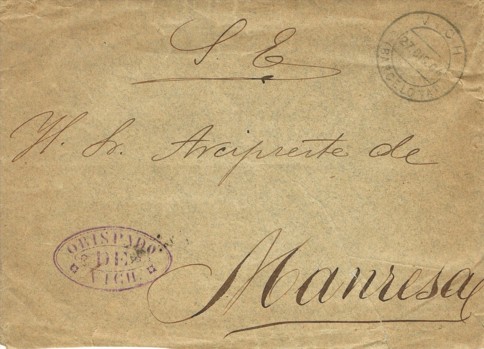 S. E.
VICH
(BARCELONA)
H. Sr. Arcipreste de
OBISPADO
DE
VICH
Manresa